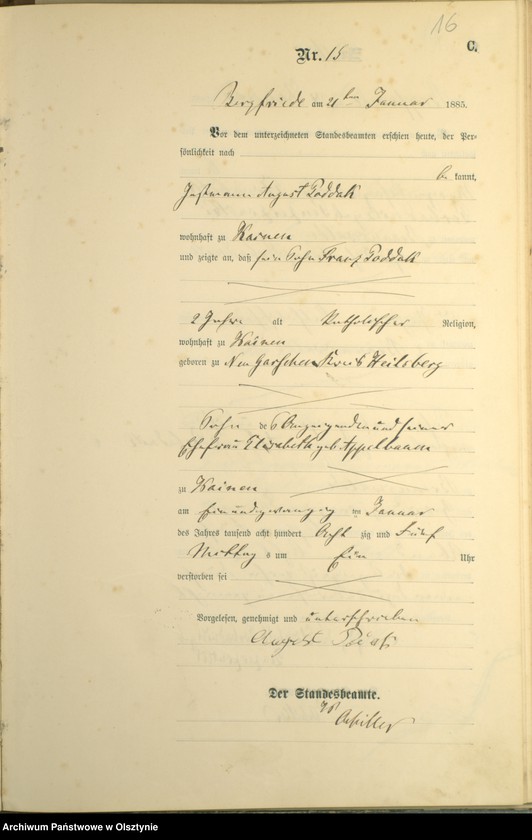 16
C.
Nr. 15
Bergfriede am 21ten Januar 1885.
Vor dem unterzeichneten Standesbeamten erschien heute, der Per-
sönlichkeit nach
be kannt,
August Poddak
wohnhaft zu Kainen
und zeigte an, daß sein Sohn Franz Poddak
2 Jahre alt katholischer Religion,
wohnhaft zu Kainen
geboren zu Neu Garschen Kreis Heilsberg
Sohn des Anzeigenden und seiner
Ehefrau Elisabeth geb. Appelbaum
zu Kainen
am Einundzwanzig ten Januar
des Jahres tausend acht hundert Acht zig und Fünf
Mittag s um Ein Uhr
verstorben sei
Vorgelesen, genehmigt und unterschrieben
August
Der Standesbeamte.
Archiwum Państwowe w Olsztynie